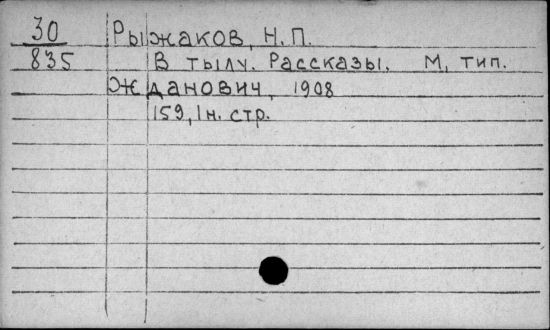 30 Рыжаков, Н.П.
835 В тылу. Рассказы. М, тип.
Жданович, 1908
159, 1н. стр.